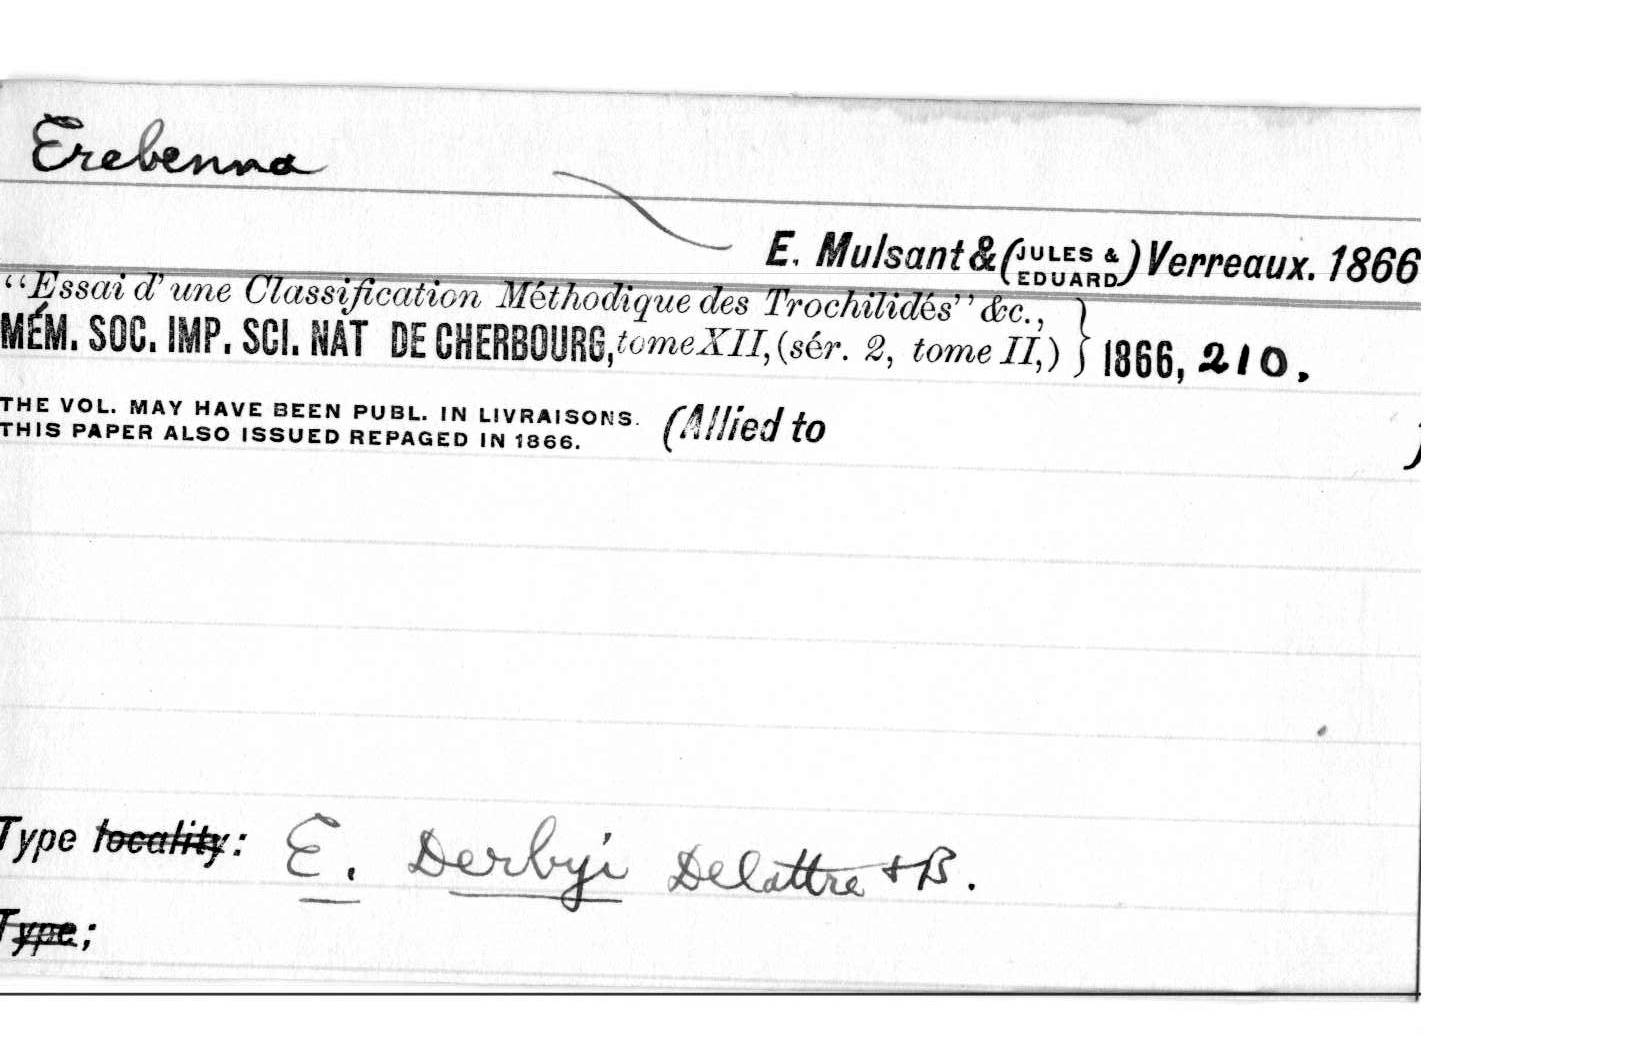 Erebenna
E. Mulsant & (JULES & EDUARD) Verreaux. 1866
“Essai d'une Classification Méthodique des Trochilidés” &c.,
MÉM. SOC. IMP. SCI. NAT DE CHERBOURG, tome XII, (sér. 2, tome II,) } 1866, 210.
THE VOL. MAY HAVE BEEN PUBL. IN LIVRAISONS.
THIS PAPER ALSO ISSUED REPAGED IN 1866. (Allied to )
Type locality: E. Derbyi Delattre + B.
Type;